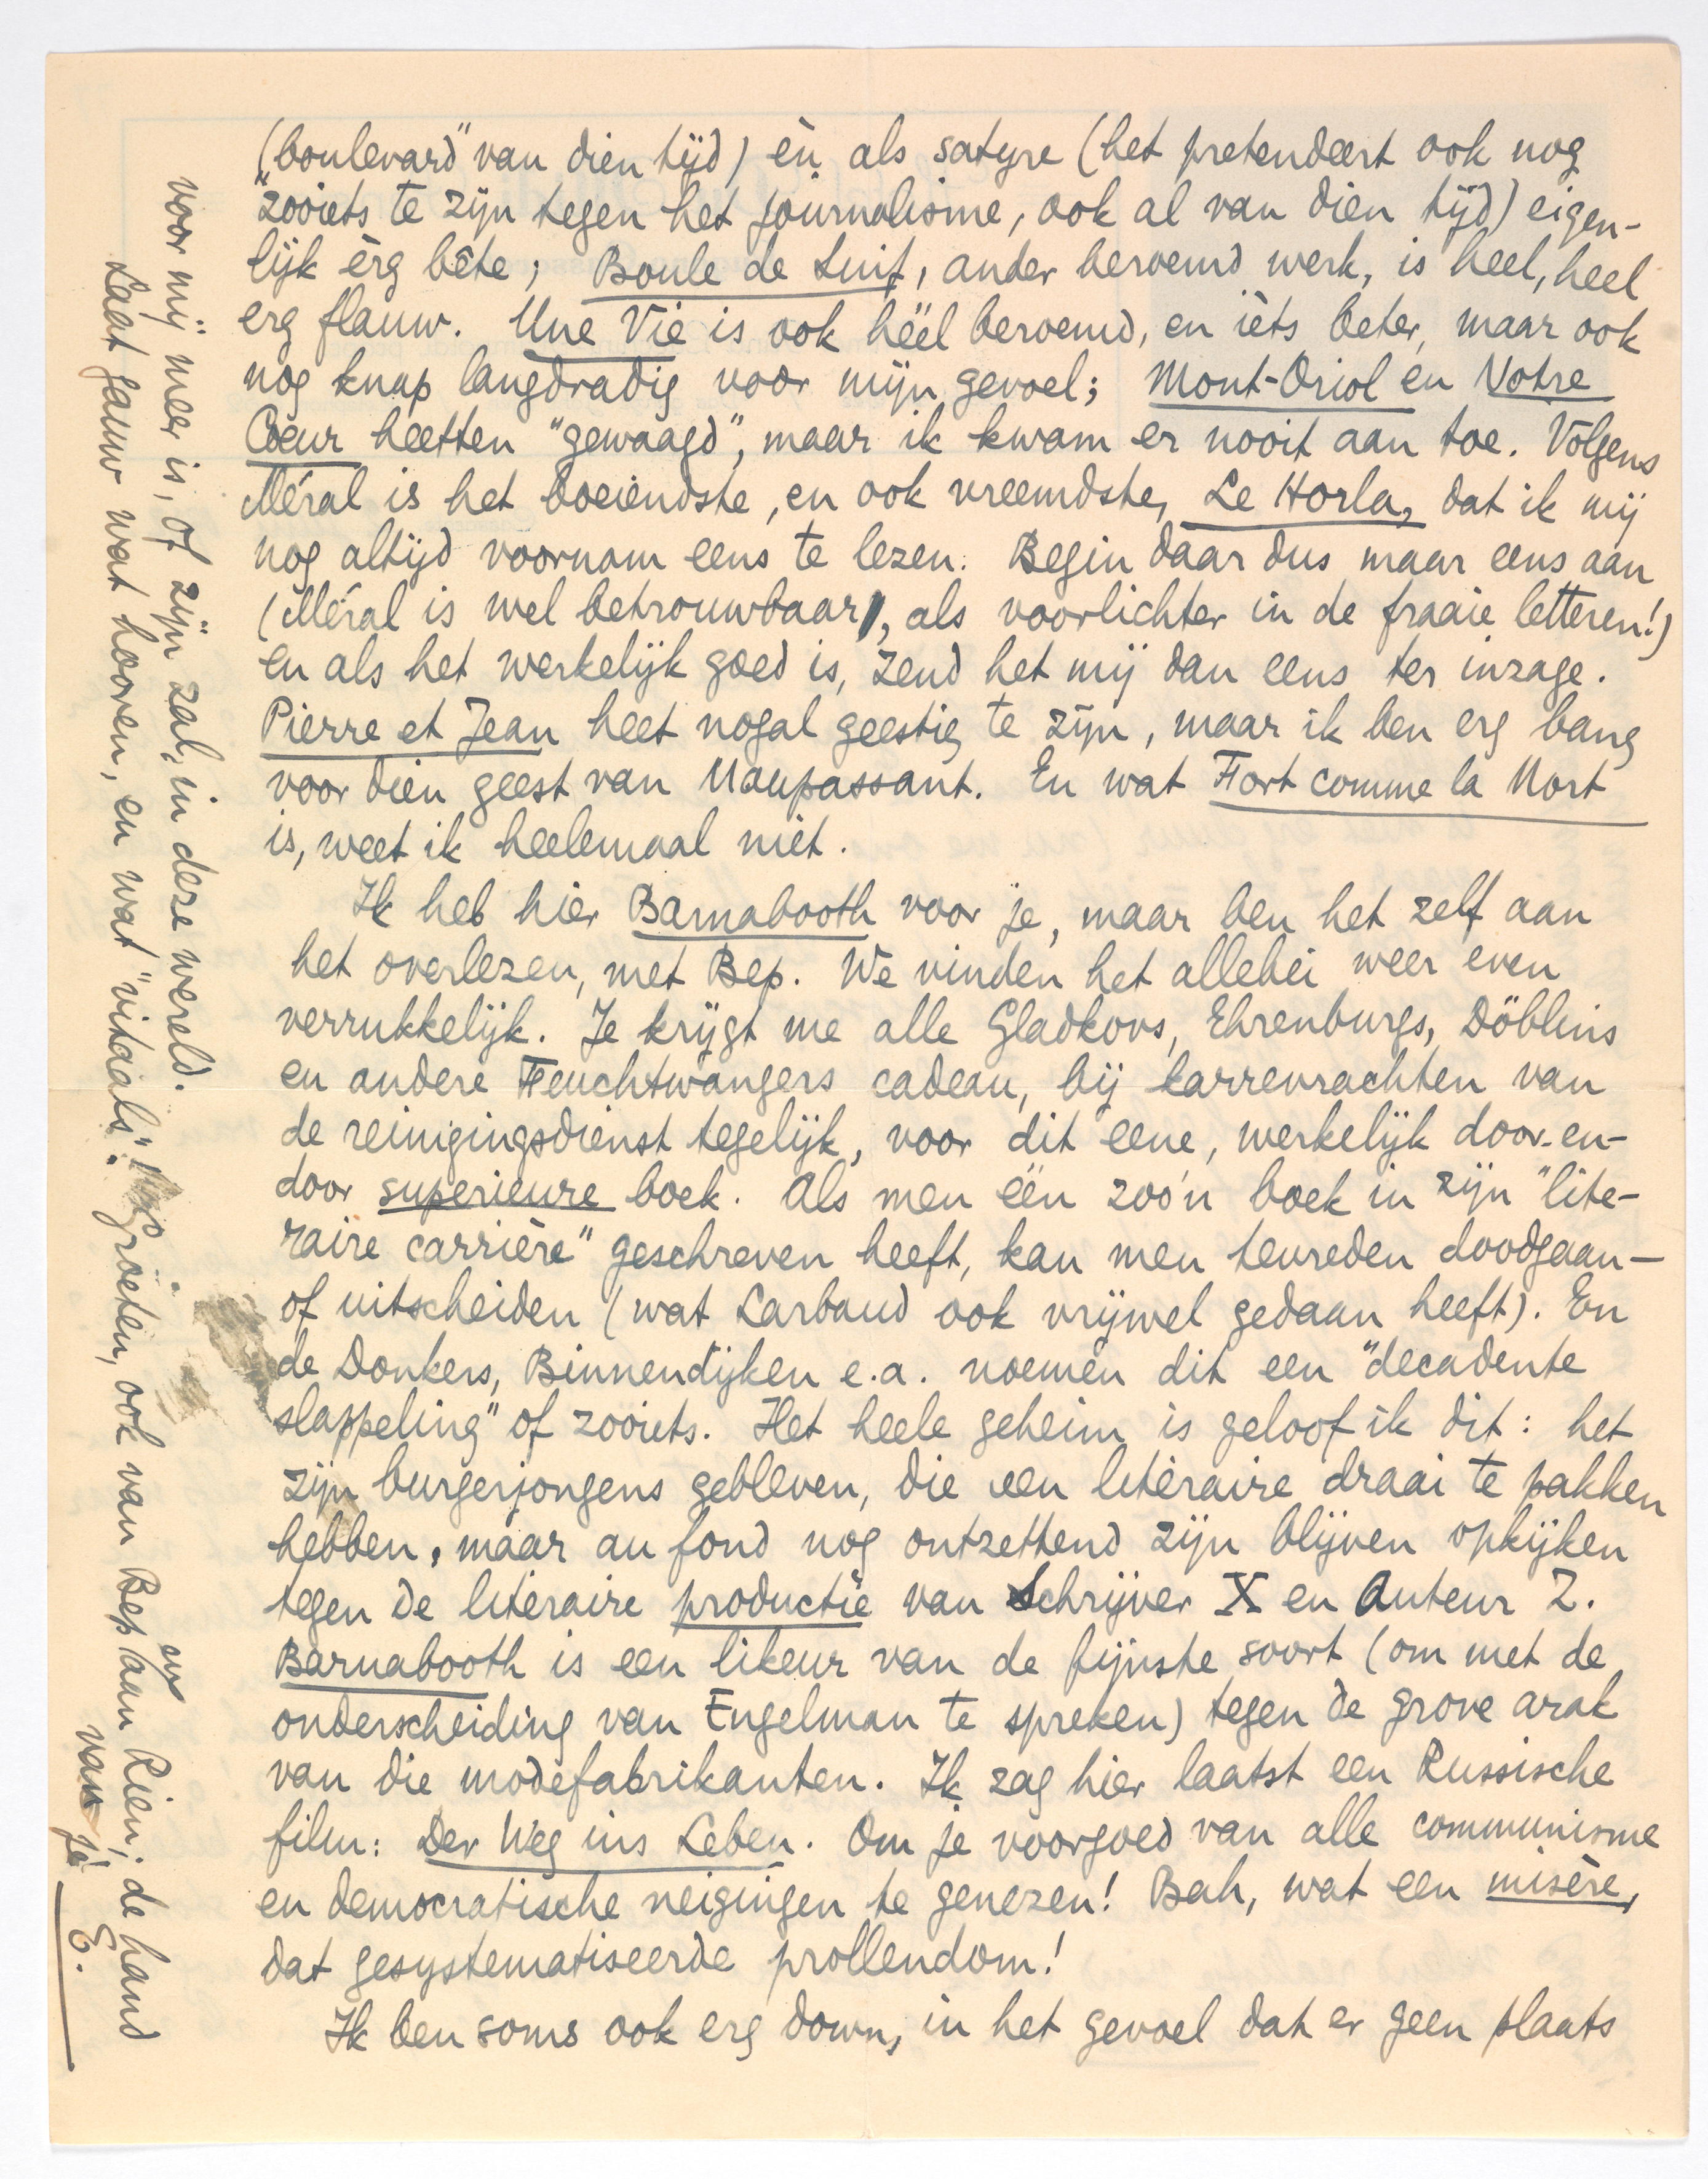 ("boulevard" van dien tijd) èn als satyre (het pretendeert ook nog
zooiets te zijn tegen het journalisme, ook al van dien tijd) eigen-
lijk èrg bête; Boule de Suif, ander beroemd werk, is heel, heel
erg flauw. Une Vie is ook héél beroemd, en ièts beter, maar ook
nog knap langdradig voor mijn gevoel; Mont-Oriol en Notre
Cœur heetten "gewaagd", maar ik kwam er nooit aan toe. Volgens
Méral is het boeiendste, en ook vreemdste, Le Horla, dat ik mij
nog altijd voornam eens te lezen. Begin daar dus maar eens aan
(Méral is wel betrouwbaar, als voorlichter in de fraaie letteren!)
en als het werkelijk goed is, zend het mij dan eens ter inzage.
Pierre et Jean heet nogal geestig te zijn, maar ik ben erg bang
voor dien geest van Maupassant. En wat Fort comme la Mort
is, weet ik heelemaal niet.
Ik heb hier Barnabooth voor je, maar ben het zelf aan
het overlezen, met Bep. We vinden het allebei weer even
verrukkelijk. Je krijgt me alle Gladkovs, Ehrenburgs, Döblins
en andere Feuchtwangers cadeau, bij karrevrachten van
de reinigingsdienst tegelijk, voor dit eene, werkelijk door-en-
door superieure boek. Als men één zoo'n boek in zijn "lite-
raire carrière" geschreven heeft, kan men tevreden doodgaan —
of uitscheiden (wat Larbaud ook vrijwel gedaan heeft). En
de Donkers, Binnendijken e.a. noemen dit een "decadente
slappeling" of zooiets. Het heele geheim is geloof ik dit: het
zijn burgerjongens gebleven, die een literaire draai te pakken
hebben, maar au fond nog ontzettend zijn blijven opkijken
tegen de literaire productie van Schrijver X en Auteur Z.
Barnabooth is een likeur van de fijnste soort (om met de
onderscheiding van Engelman te spreken) tegen de grove arak
van die modefabrikanten. Ik zag hier laatst een Russische
film: Der Weg ins Leben. Om je voorgoed van alle communisme
en democratische neigingen te genezen! Bah, wat een misère,
dat gesystematiseerde prollendom!
Ik ben soms ook erg down, in het gevoel dat er geen plaats
voor mij meer is, of zijn zal, in deze wereld.
Laat gauw wat hooren, en wat "vitaals". Groeten, ook van Bep en aan Rien; de hand
van je
E.